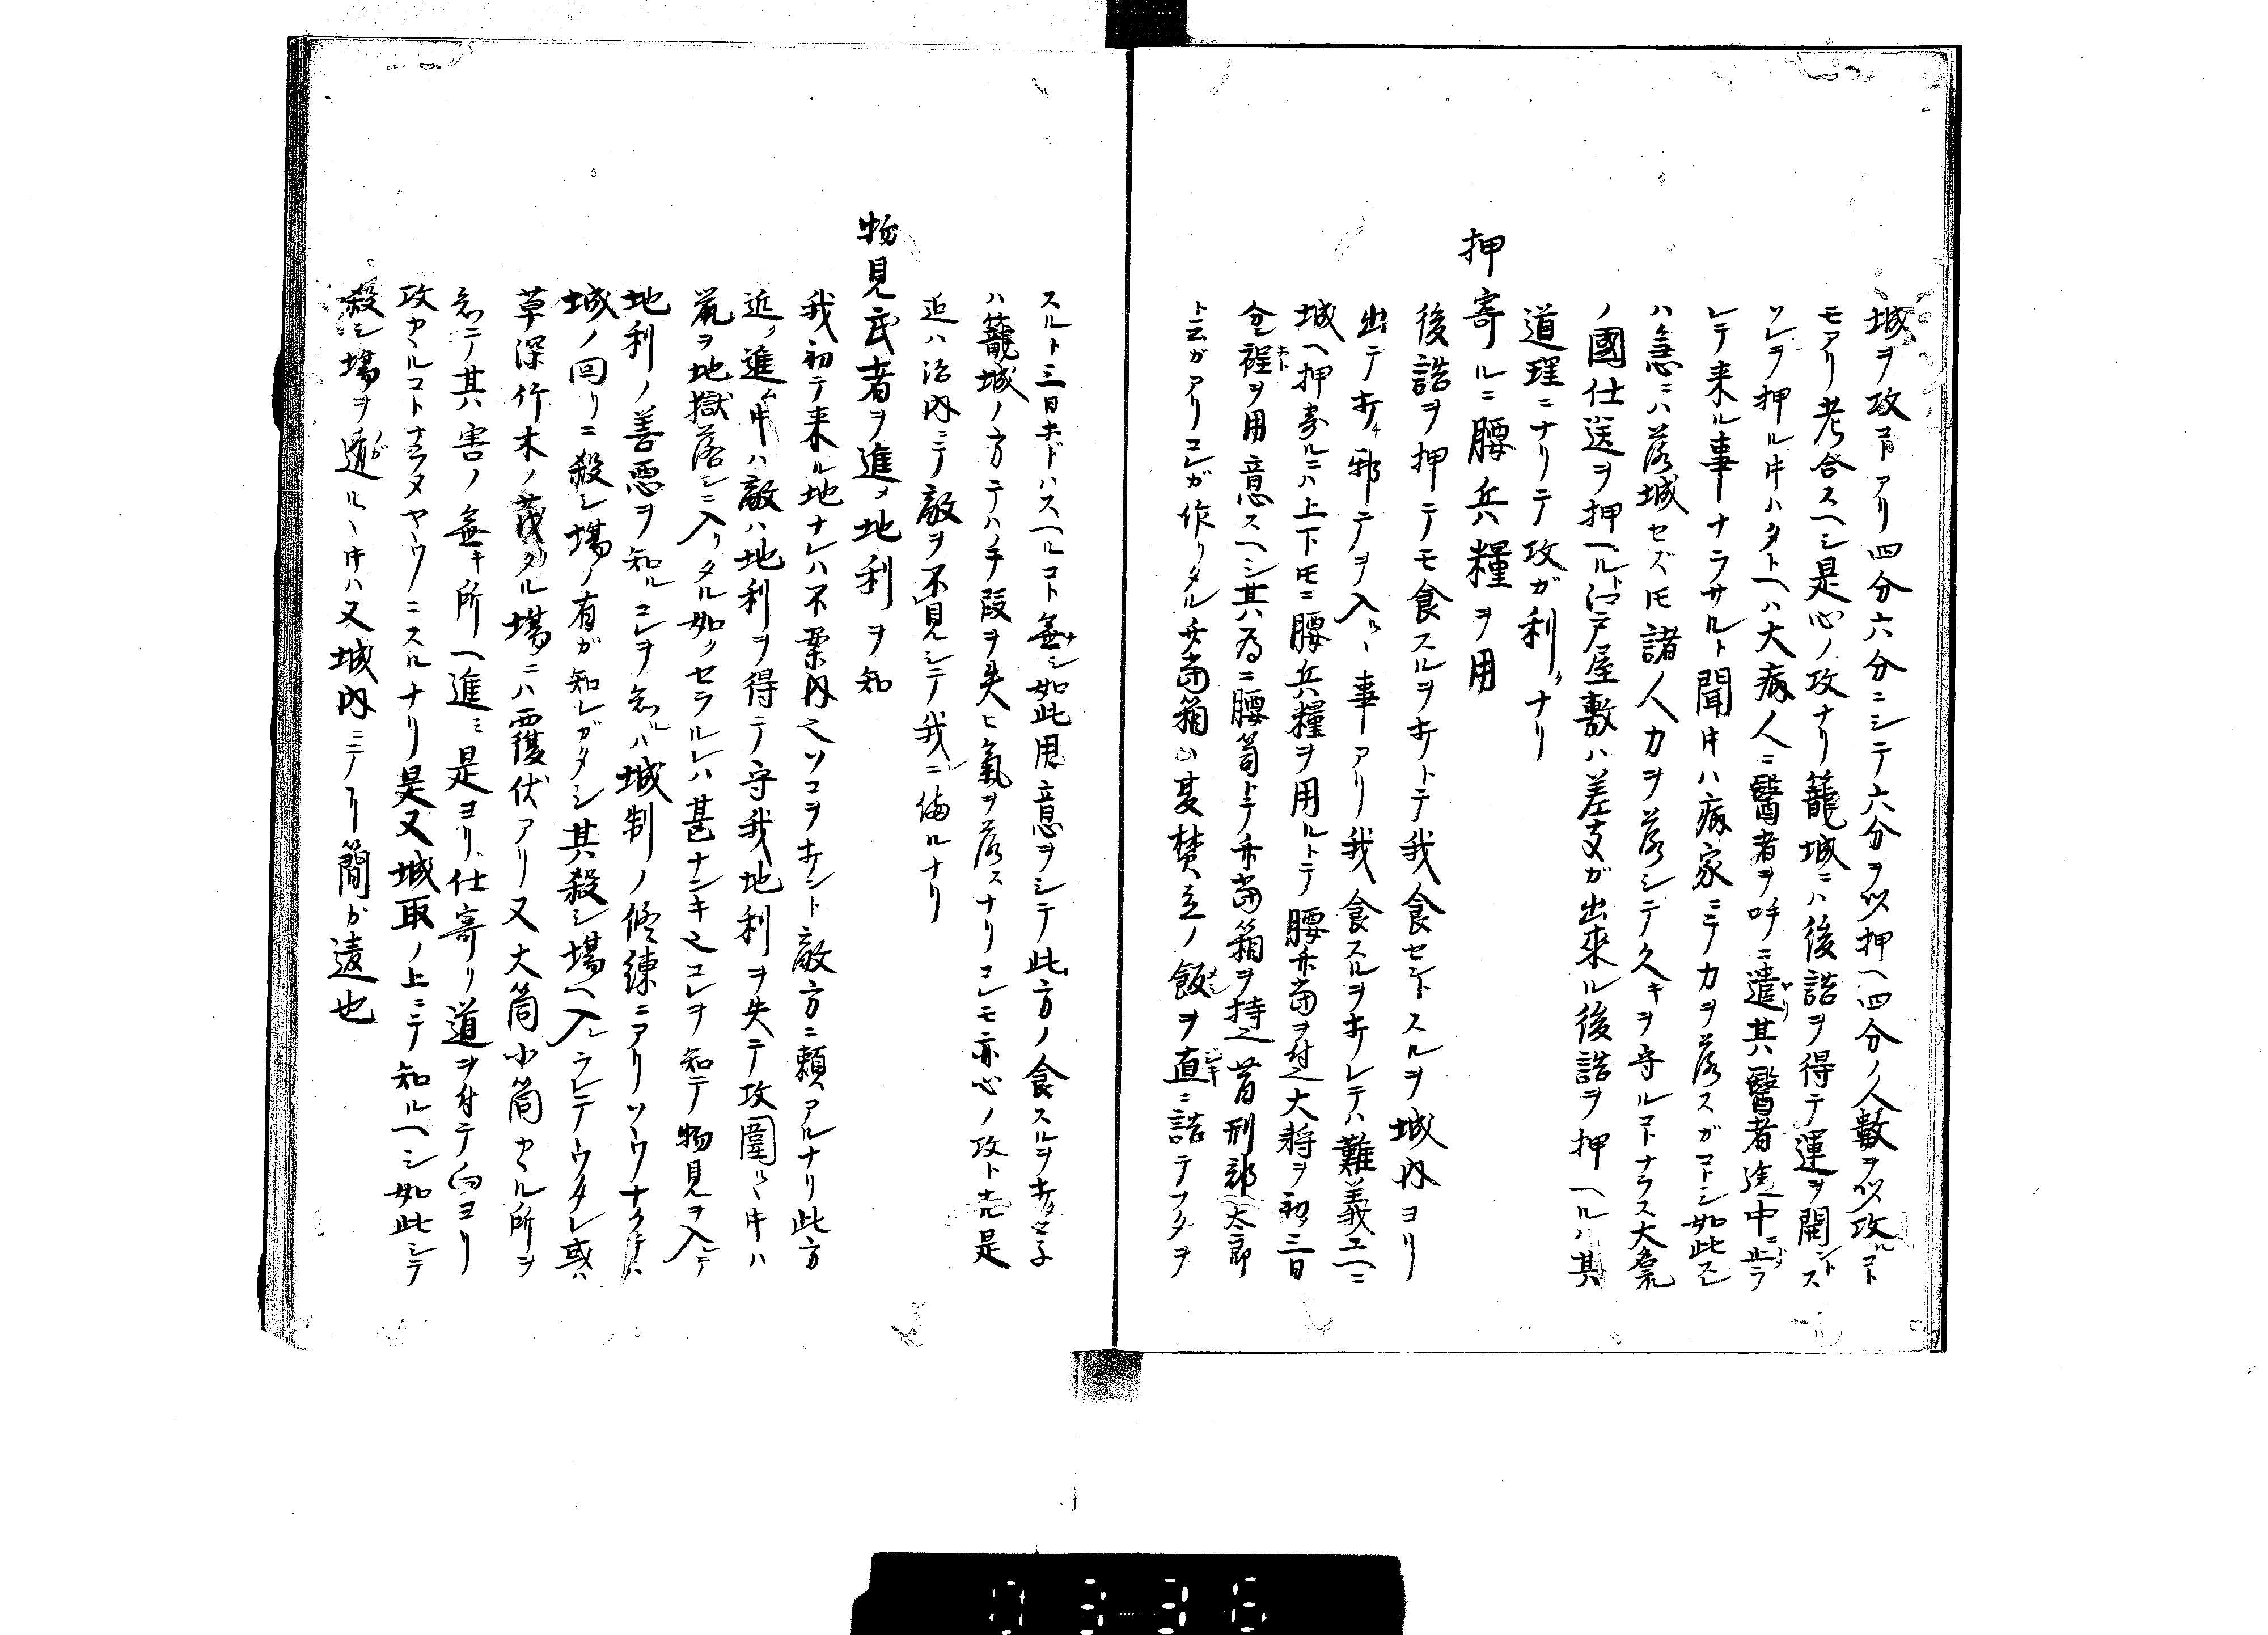 城ヲ攻ヿアリ四分六分ニシテ六分ヲ以押ヘ四分ノ人數ヲ以攻ルコト
モアリ考合スヘシ是心ノ攻ナリ籠城ニハ後詰ヲ得テ運ヲ開ントス
ソレヲ押ル寸ハタトヘハ大病人ニ醫者ヲ呼ニ遣其醫者途中ニ
レテ来ル事ナラサルト聞寸ハ病家ニテ力ヲ落スガコトシ如此スレ
ハ急ニハ落城セズ𪜈諸人力ヲ落シテ久キヲ守ルコトナラス大名
ノ國仕送ヲ押ヘルト江戸屋敷ハ差支ガ出来ル後詰ヲ押ヘルハ其
道理ニナリテ攻ガ利クナリ
押寄ルニ腰兵糧ヲ用
後詰ヲ押テモ食スルヲキトテ我食セントスルヲ城内ヨリ
出テ邪テヲ入ルヽ事アリ我食スルヲサレテハ難義ユヘニ
城ヘ押寄ルニハ上下𪜈ニ腰兵糧ヲ用ルトテ腰弁當ヲ付之大将ヲ初三日
分程ヲ用意スヘシ其為ニ腰筒トテ弁當箱ヲ持之昔刑部太郎
ト云ガアリコレガ作リタル弁當箱ハ夏焚立ノ飯ヲ直ニ詰テフタヲ
スルト三日ホドハスヘルコト無シ如此用意ヲシテ此方ノ食スルヲ
ハ籠城ノ方テハ手段ヲ失ヒ氣ヲ落スナリコレモ亦心ノ攻ト是
近ハ治内ニテ敵ヲ不見シテ我ニ備ルナリ
物見武者ヲ進メ地利ヲ知
我初テ来ル地ナレハ不案内之ソコヲキント敵方ニ頼アルナリ此方
近ク進ム寸ハ敵ハ地利ヲ得テ守我地利ヲ失テ攻圍ルヽ寸ハ
鼠ヲ地獄落シニ入リタル如クセラルレハ甚ナンキ之コレヲ知テ物見ヲ入レテ
地利ノ善悪ヲ知ルコレヲ知ルハ城制ノ修練ニアリソウナクテハ
城ノ回リニ殺シ場ノ有ガ知レガタシ其殺シ場ヘ入レラレテウタレ或ハ
草深竹木ノ茂リタル場ニハ覆伏アリ又大筒小筒カヽル所ヲ
知テ其害ノ無キ所ヘ進ミ是ヨリ仕寄リ道ヲ付テ向ヨリ
攻カヽルコトナラヌヤウニスルナリ是又城取ノ上ニテ知ルヘシ如此シテ
殺シ場ヲ遁ルヽ寸ハ又城内ニテ簡が違也